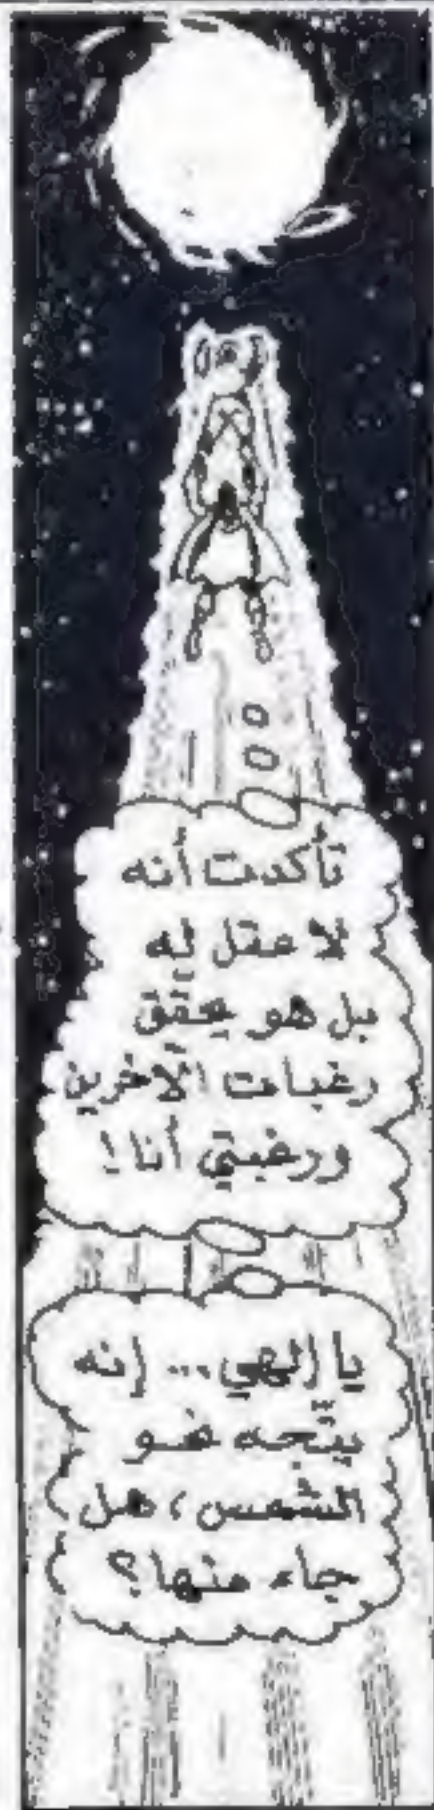 تأكدت أنه
لا عقل له
بل هو يحقق
رغبات الآخرين
ورغبتي أنا!
يا إلهي... إنه
يتّجه نحو
الشمس، هل
جاء منها؟